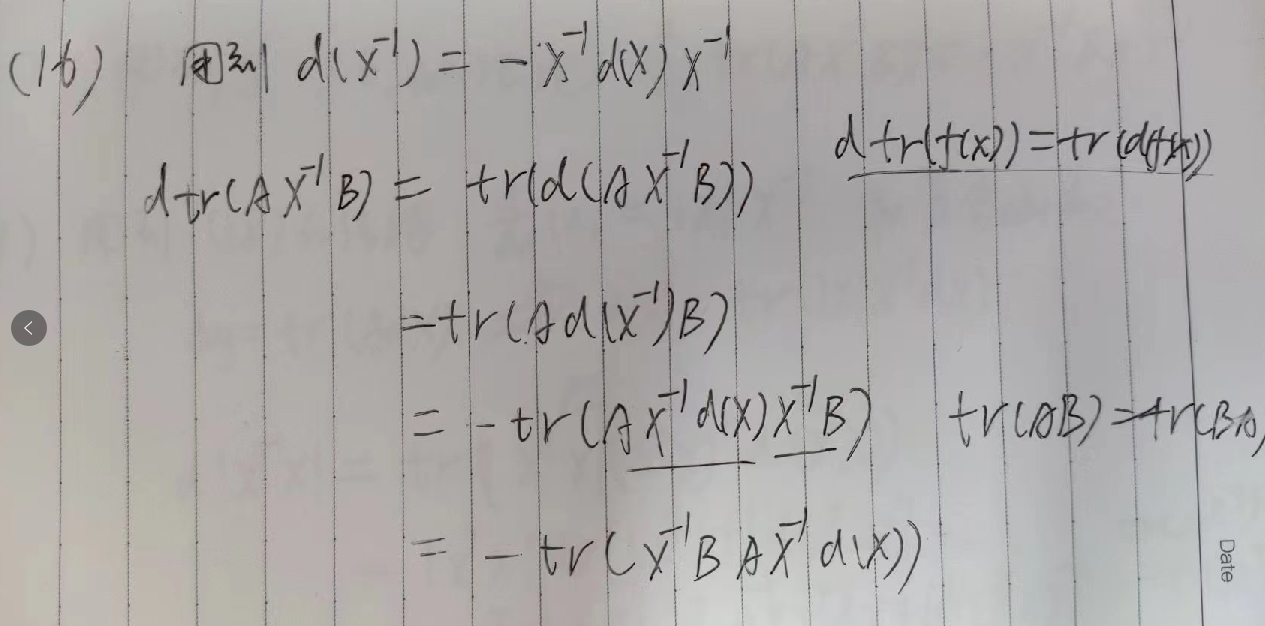 (16) 用到 d(X⁻¹) = -X⁻¹d(X)X⁻¹
d tr(f(x)) = tr(d(f(x)))
dtr(AX⁻¹B) = tr(d(AX⁻¹B))
= tr(Ad(X⁻¹)B)
= -tr(AX⁻¹d(X)X⁻¹B) tr(AB)=tr(BA)
= -tr(X⁻¹BAX⁻¹d(X))
Date